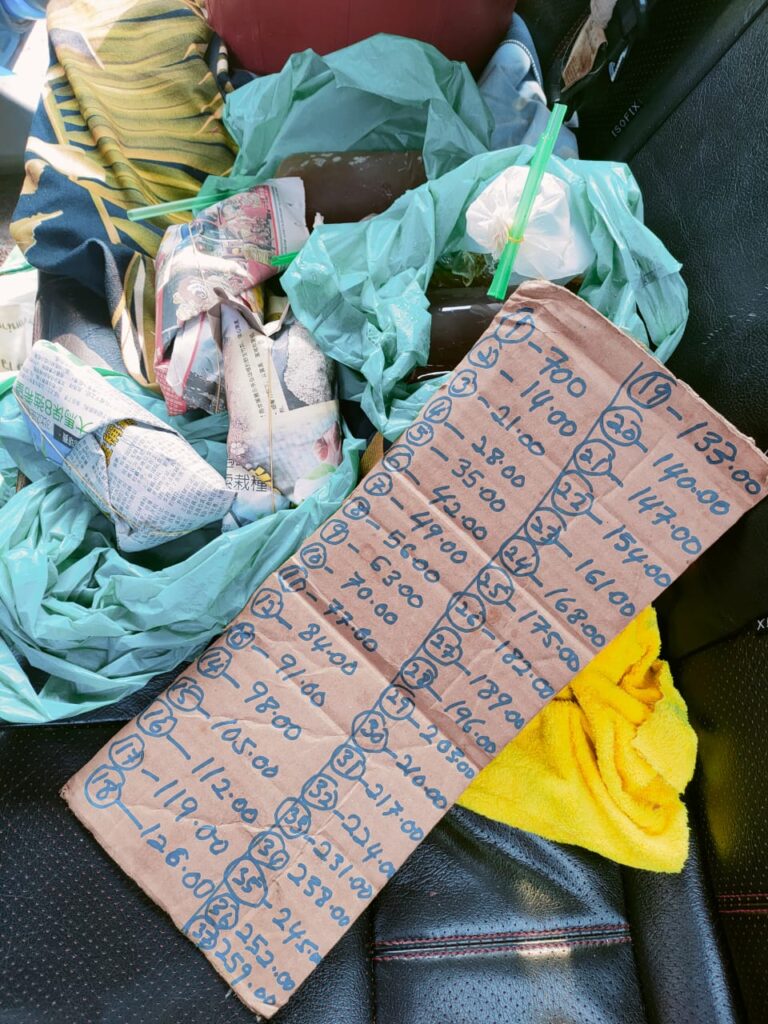 ISOFIX
大馬保8強希
栽種
1 - 700
2 - 14.00
3 - 21.00
4 - 28.00
5 - 35.00
6 - 42.00
7 - 49.00
8 - 56.00
9 - 63.00
10 - 70.00
11 - 77.00
12 - 84.00
13 - 91.00
14 - 98.00
15 - 105.00
16 - 112.00
17 - 119.00
18 - 126.00
19 - 133.00
20 - 140.00
21 - 147.00
22 - 154.00
23 - 161.00
24 - 168.00
25 - 175.00
26 - 182.00
27 - 189.00
28 - 196.00
29 - 203.00
30 - 210.00
31 - 217.00
32 - 224.00
33 - 231.00
34 - 238.00
35 - 245.00
36 - 252.00
37 259.00